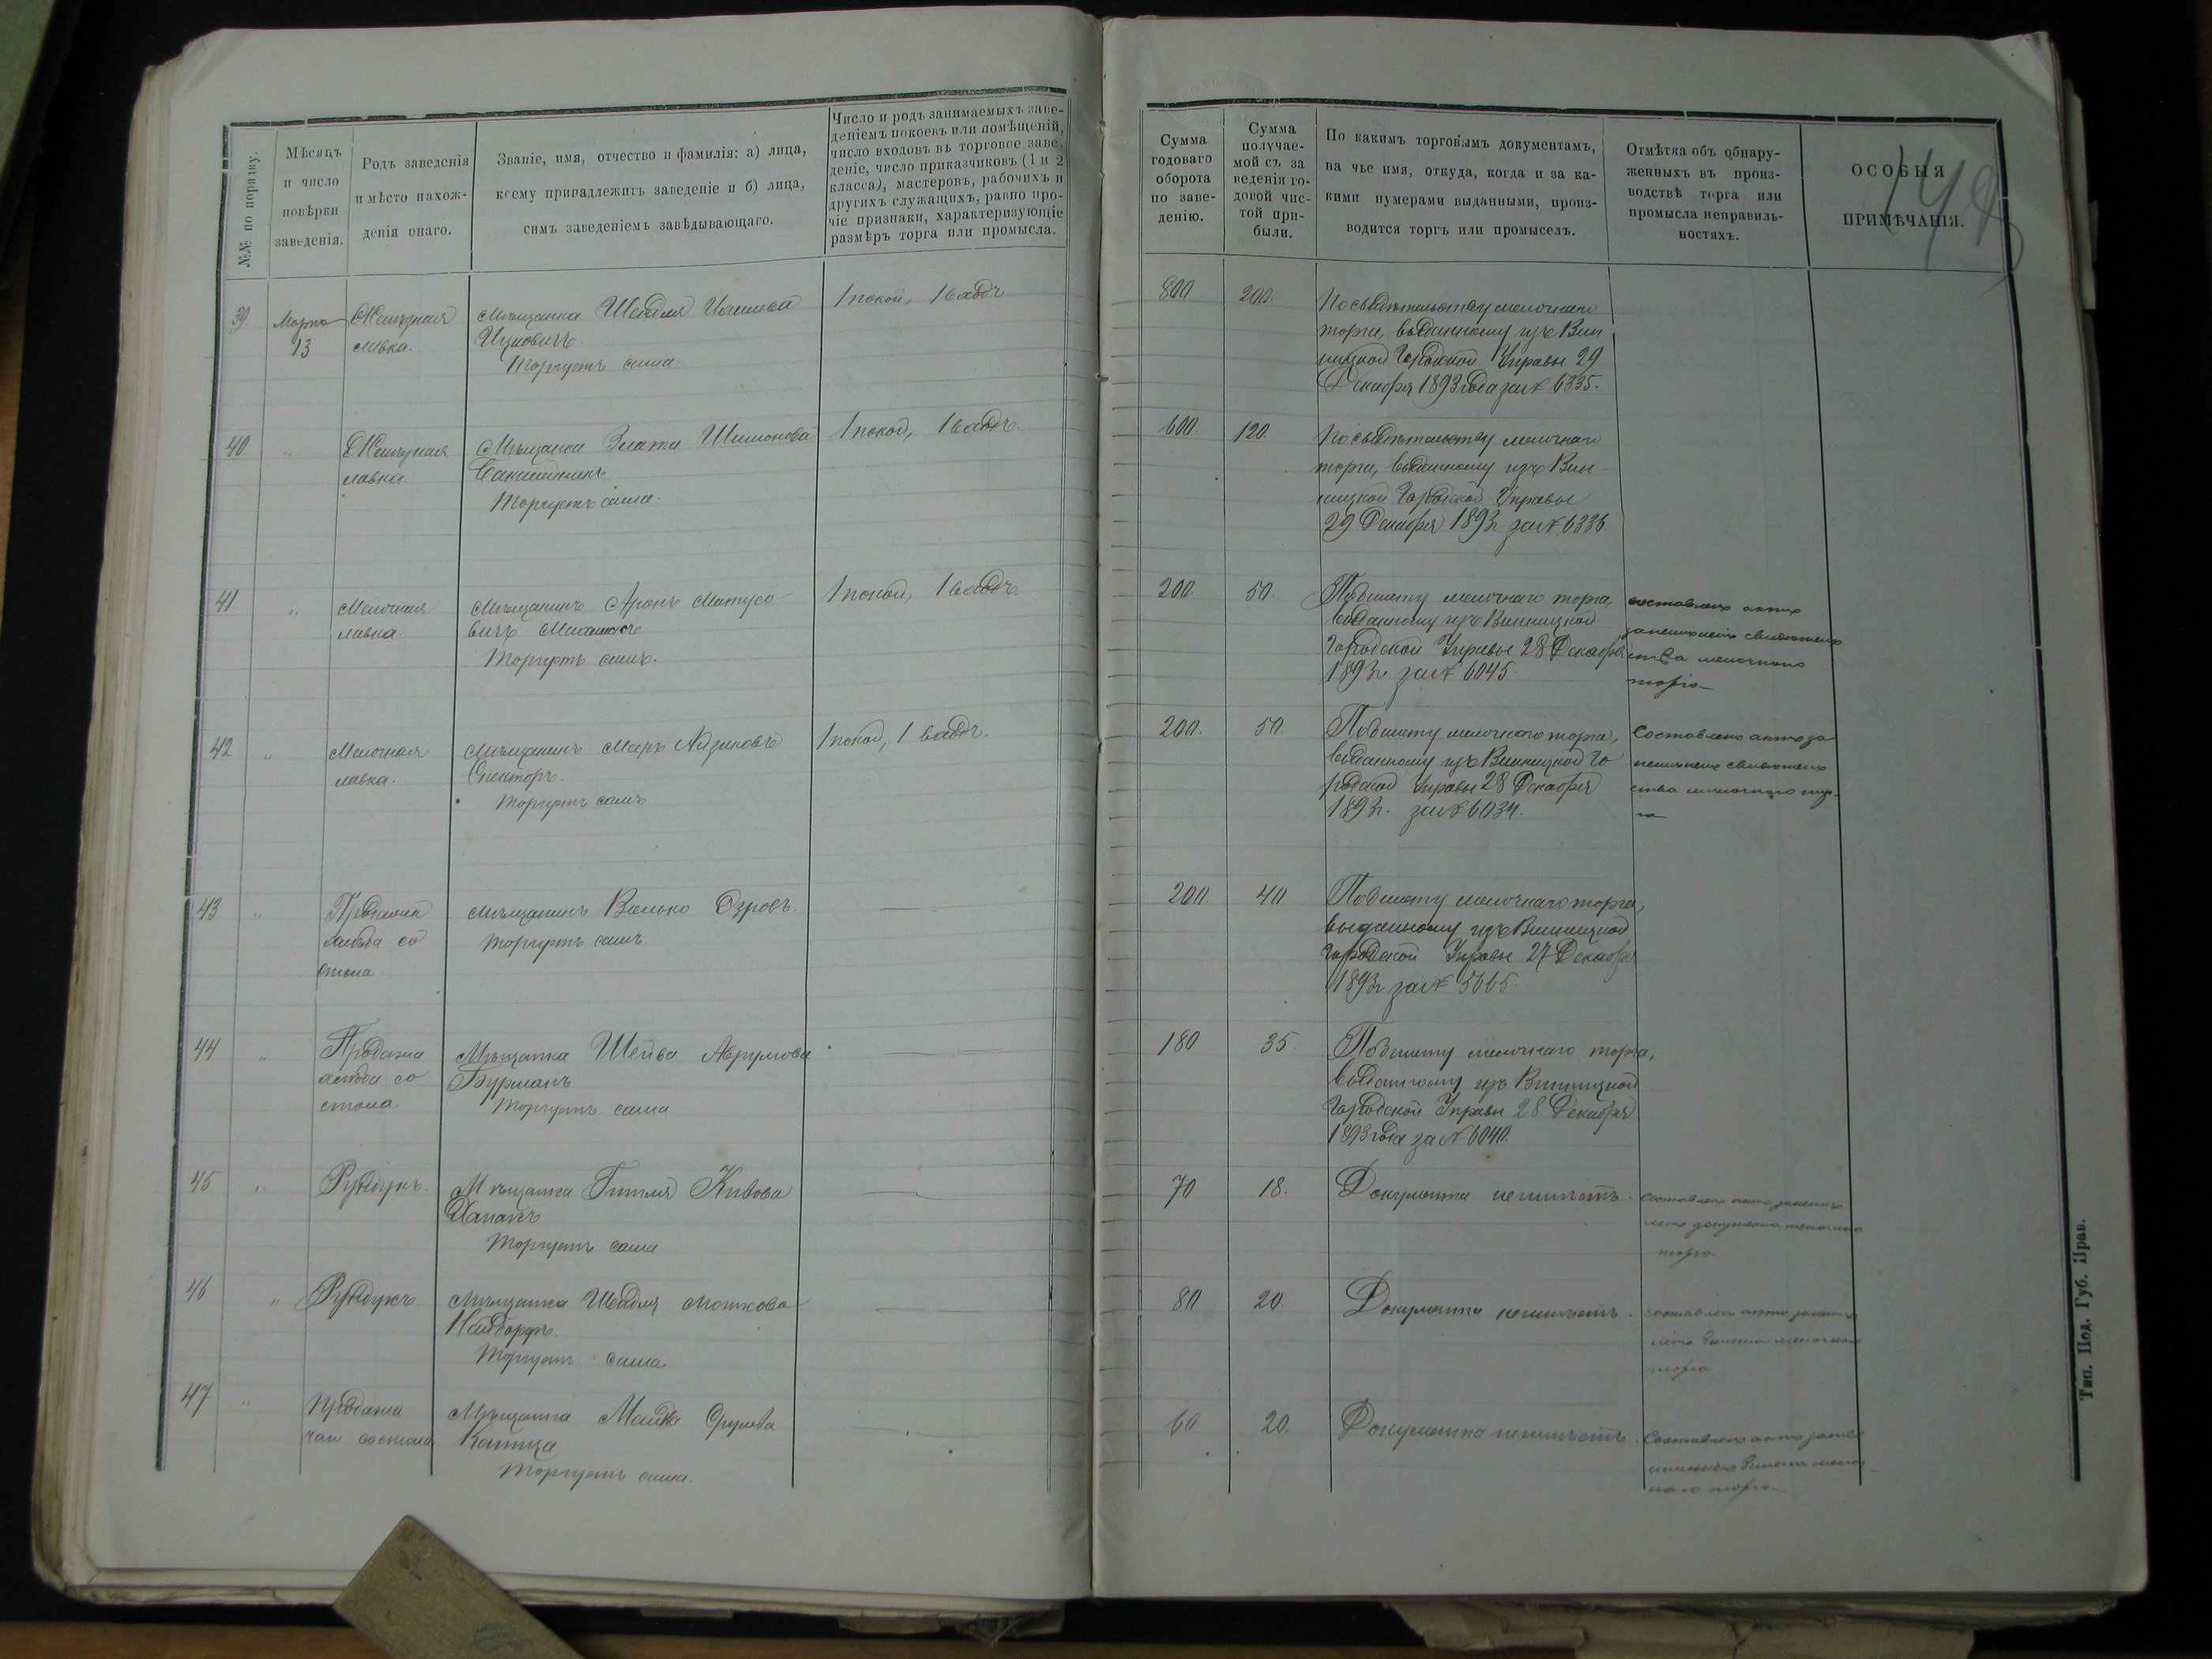 №№ по порядку.
Мѣсяцъ
и число
повѣрки
заведенія.
Родъ заведенія
и мѣсто нахож-
денія онаго.
Званіе, имя, отчество и фамилія: а) лица,
коему принадлежитъ заведеніе и б) лица,
симъ заведеніемъ завѣдывающаго.
Число и родъ занимаемыхъ заве-
деніемъ покоевъ или помѣщеній,
число входовъ въ торговое заве-
деніе, число приказчиковъ (1 и 2
класса), мастеровъ, рабочихъ и
другихъ служащихъ, равно про-
чіе признаки, характеризующіе
размѣръ торга или промысла.
Сумма
годоваго
оборота
по заве-
денію.
Сумма
получае-
мой съ за
веденія го-
довой чис-
той при-
были.
По какимъ торговымъ документамъ,
на чье имя, откуда, когда и за ка-
кими нумерами выданными, произ-
водится торгъ или промыселъ.
Отмѣтка объ обнару-
женныхъ въ произ-
водствѣ торга или
промысла неправиль-
ностяхъ.
ОСОБЫЯ
ПРИМѢЧАНІЯ.
39
Марта
13
Желѣзная
лавка.
Мѣщанка Шейдля
Ицковичъ
Торгуетъ сама
1 покой, 1 входъ
800
200.
По свидѣтельству мелочнаго
торга, выданному изъ Вин
ницкой Городской Управы 29
Декабря 1893 года за № 6335.
40
"
Желѣзная
лавка.
Мѣщанка Злата Шимонова
Торгуетъ сама.
1 покой, 1 входъ.
600.
120.
По свидѣтельству мелочнаго
торга, выданному изъ Вин
ницкой Городской Управы
29 Декабря 1893г. за № 6336.
41
"
Мелочная
лавка.
Мѣщанинъ Аронъ Матусо
вичъ
Торгуетъ самъ.
1 покой, 1 входъ
200.
50.
По билету мелочнаго торга,
выданному изъ Винницкой
Городской Управы 28 Декабря
1893г за № 6045.
составленъ актъ
за неимѣніе свидѣтель
ства мелочнаго
торга
42
"
Мелочная
лавка.
Мѣщанинъ Меръ Айзиковъ
Спекторъ.
Торгуетъ самъ
1 покой, 1 входъ.
200.
50.
По билету мелочнаго торга,
выданному изъ Винницкой Го
родской Управы 28 Декабря
1893г. за № 6034.
Составленъ актъ за
неимѣніе свидѣтель
ства мелочнаго тор
га
43
"
Продажа
хлѣба со
стола
Мѣщанинъ Волько Озровъ.
Торгуетъ самъ.
200
40
По билету мелочнаго торга,
выданному изъ Винницкой
Городской Управы 27 Декабря
1893г за № 5665.
44
"
Продажа
хлѣба со
стола.
Мѣщанка Шейва Аврумова
Бурманъ
Торгуетъ сама
180
35.
По билету мелочнаго торга,
выданному изъ Винницкой
Городской Управы 28 Декабря
1893 года за № 6040.
45
"
Рундукъ.
Мѣщанка Гитля Кивова
Хапанъ
Торгуетъ сама
70
18.
Документа неимѣетъ.
Составленъ актъ за неимѣ
ніе документа мелочнаго
торга
46
"
Рундукъ.
Мѣщанка Шейдля Мошкова
Найдорфъ.
Торгуетъ сама
80
20.
Документа неимѣетъ.
составленъ актъ за неимѣ
ніе билета мелочнаго
торга
47
"
Продажа
чаю со стола
Мѣщанка Малка Срулева
Капица
Торгуетъ сама.
60
20.
Документа неимѣетъ.
Составленъ актъ за не
имѣніе билета мелоч
наго торга
Тип. Под. Губ. Прав.